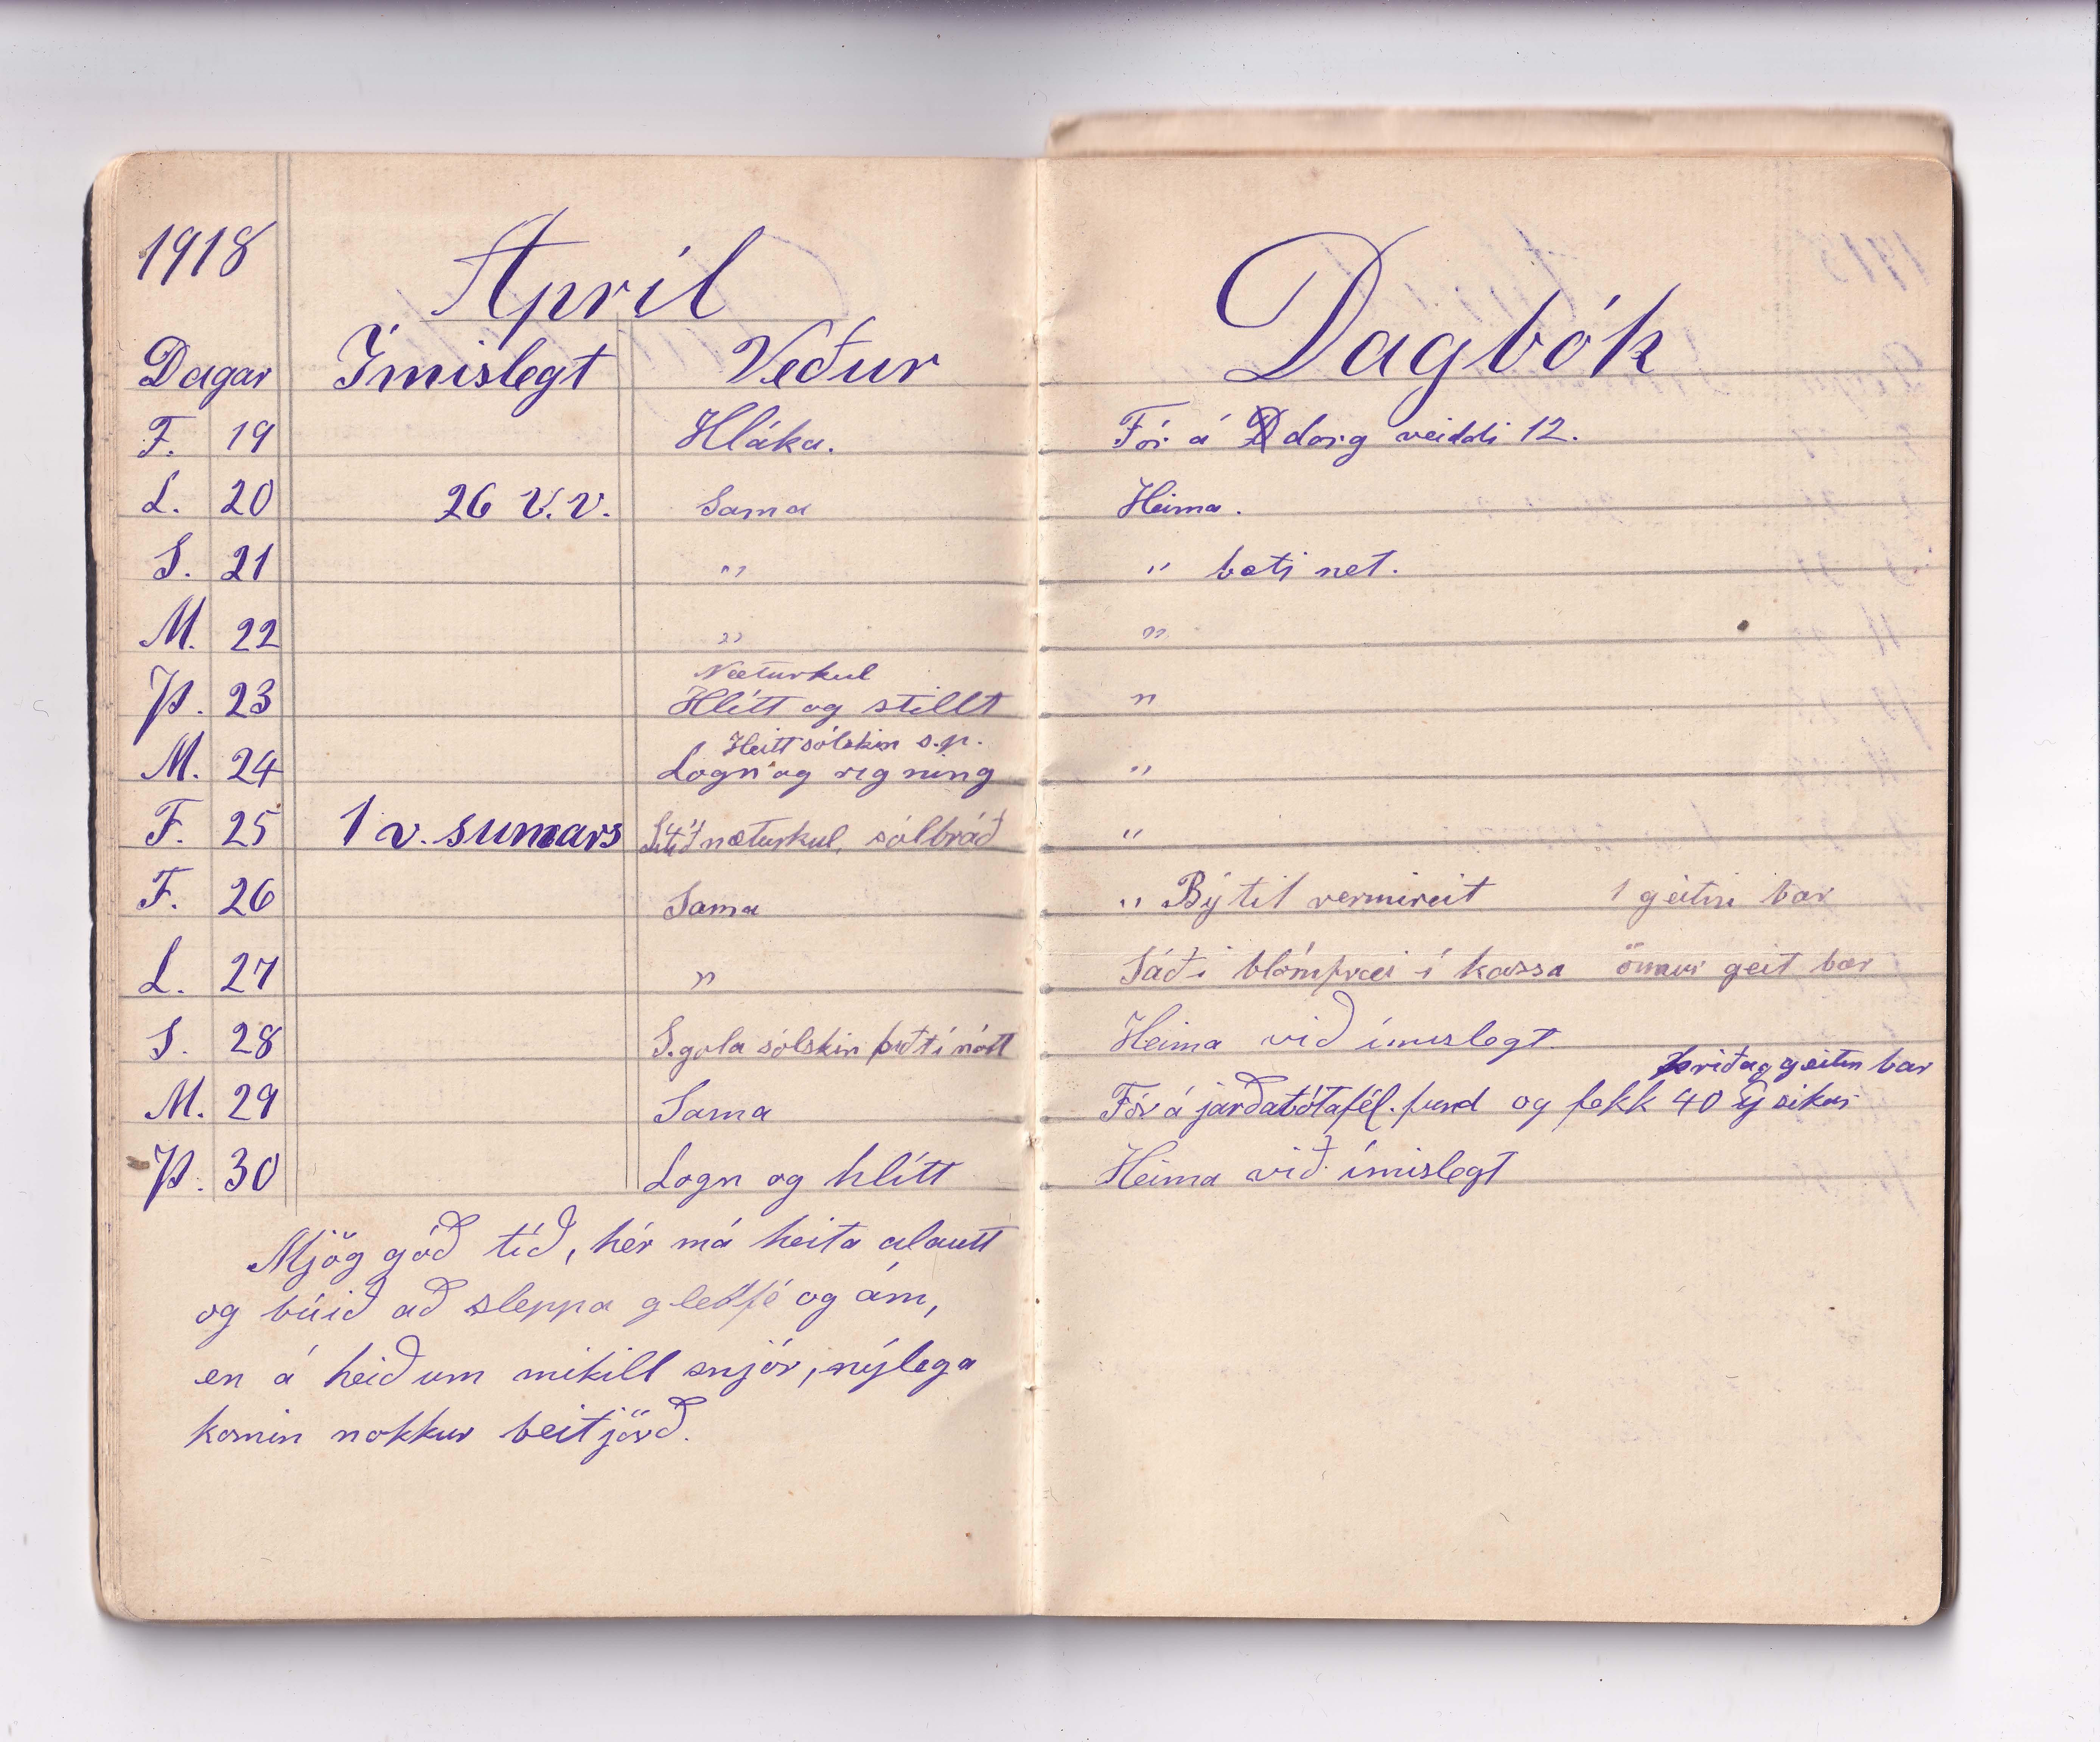 1918
April
Dagar Ímislegt Veður
F. 19 Hláka.
L. 20 26 v.v. Sama
S. 21 "
M. 22 "
Næturkul
Þ. 23 Hlítt og stillt
Heitt sólskin s.p.
M. 24 Logn og rigning
F. 25 1 v. sumars Lítið næturkul, sólbráð
F. 26 Sama
L. 27 "
S. 28 S.gola sólskin þítt í nótt
M. 29 Sama
Þ. 30 Logn og hlítt
Mjög góð tíð, hér má heita alautt
og búið að sleppa geldfé og ám,
en á heiðum mikill snjór, nýlega
komin nokkur beitjörð.
Dagbók
Fór á dorg veiddi 12.
Heima.
" bæti net.
"
"
"
"
" Bý til vermireit 1 geitin bar
Sáði blómfræi í kassa önnur geit bar
Heima við ímislegt.
þriðja geitin bar
Fór á jarðabótafél. fund og fekk 40 síkar
Heima við ímislegt